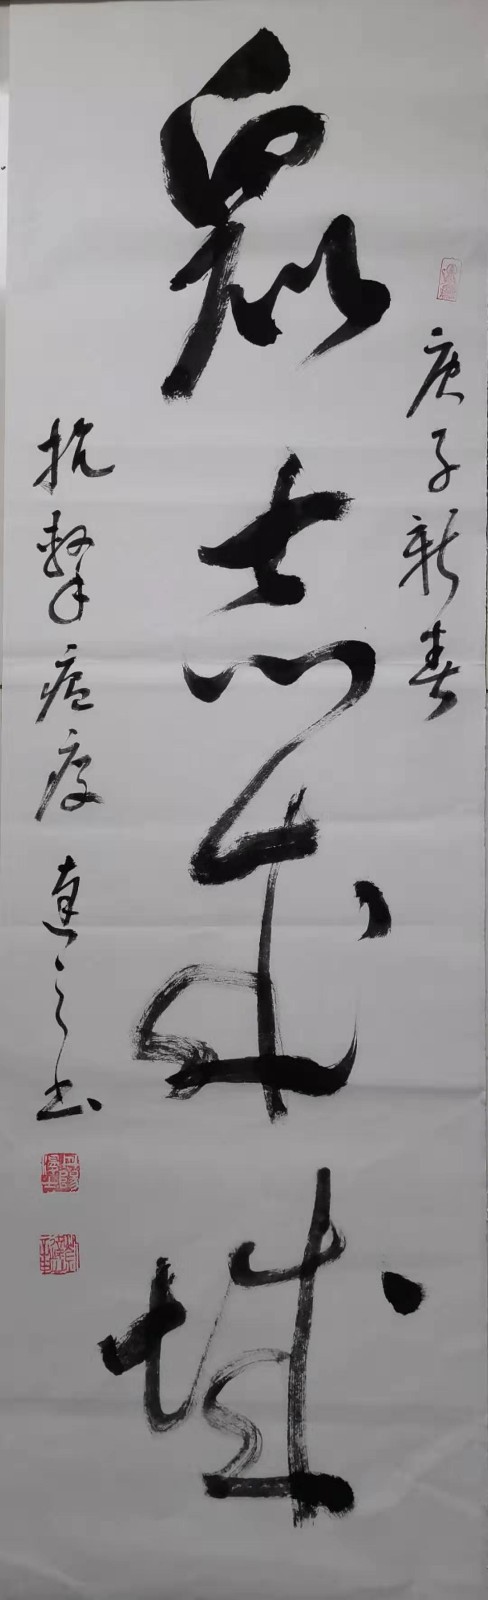 庚子新春
众志成城
抗擊瘟疫 達之书